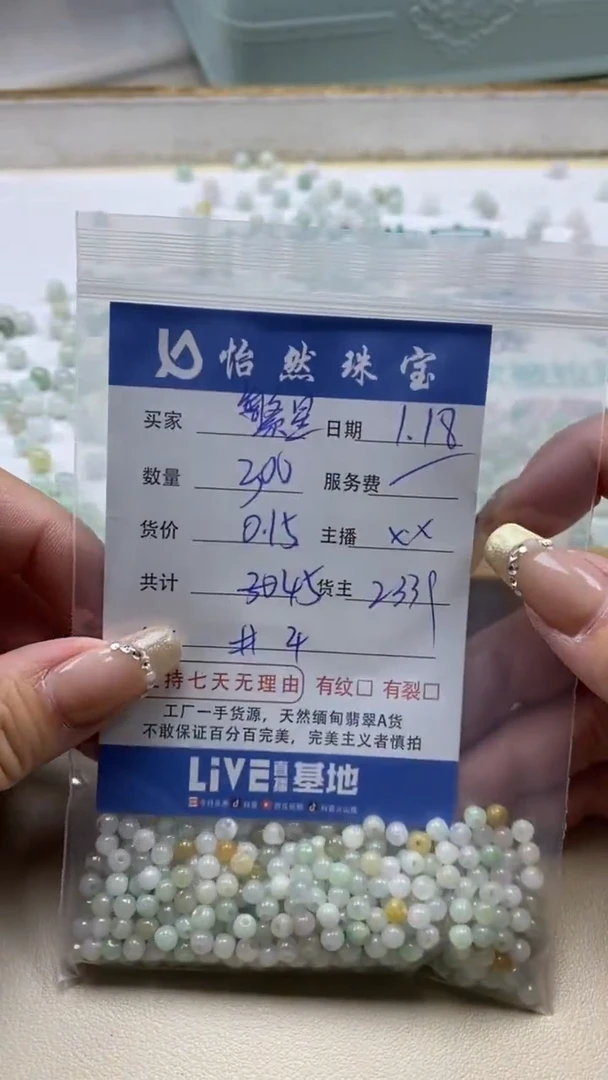 怡然珠宝
买家 繁星 日期 1.18
数量 300 服务费
货价 0.15 主播 xx
共计 45 货主 2339
#4
持七天无理由 有纹□ 有裂□
工厂一手货源，天然缅甸翡翠A货
不敢保证百分百完美，完美主义者慎拍
LiVE直播基地